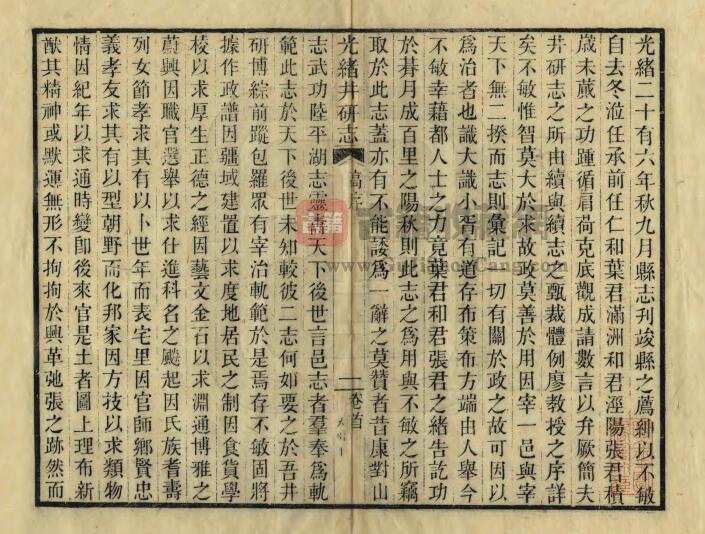 光緒二十有六年秋九月縣志刊竣縣之薦紳以不敏
自去冬涖任承前任仁和葉君滿洲和君涇陽張君積
歲未蕆之功踵循肩荷克底觀成請數言以弁厥簡夫
井研志之所由續與續志之甄裁體例廖教授之序詳
矣不敏惟智莫大於來故政莫善於用因宰一邑與宰
天下無二揆而志則彙記一切有關於政之故可因以
為治者也識大識小胥有道存布策布方端由人舉今
不敏幸藉都人士之力竟葉君和君張君之緒告訖功
於朞月成百里之陽秋則此志之為用與不敏之所竊
取於此志蓋亦有不能諉為一辭之莫贊者昔康對山
光緒井研志
序
卷首
志武功陸平湖志靈壽天下後世言邑志者羣奉為軌
範此志於天下後世未知較彼二志何如要之於吾井
研博綜前蹤包羅眾有宰治軌範於是焉存不敏固將
據作政譜因疆域建置以求度地居民之制因食貨學
校以求厚生正德之經因藝文金石以求淵通博雅之
蔚興因職官選舉以求仕進科名之颷起因氏族耆壽
列女節孝求其有以卜世年而表宅里因官師鄉賢忠
義孝友求其有以型朝野而化邦家因方技以求類物
情因紀年以求通時變卽後來官是土者圖上理布新
猷其精神或默運無形不拘拘於興革弛張之跡然而